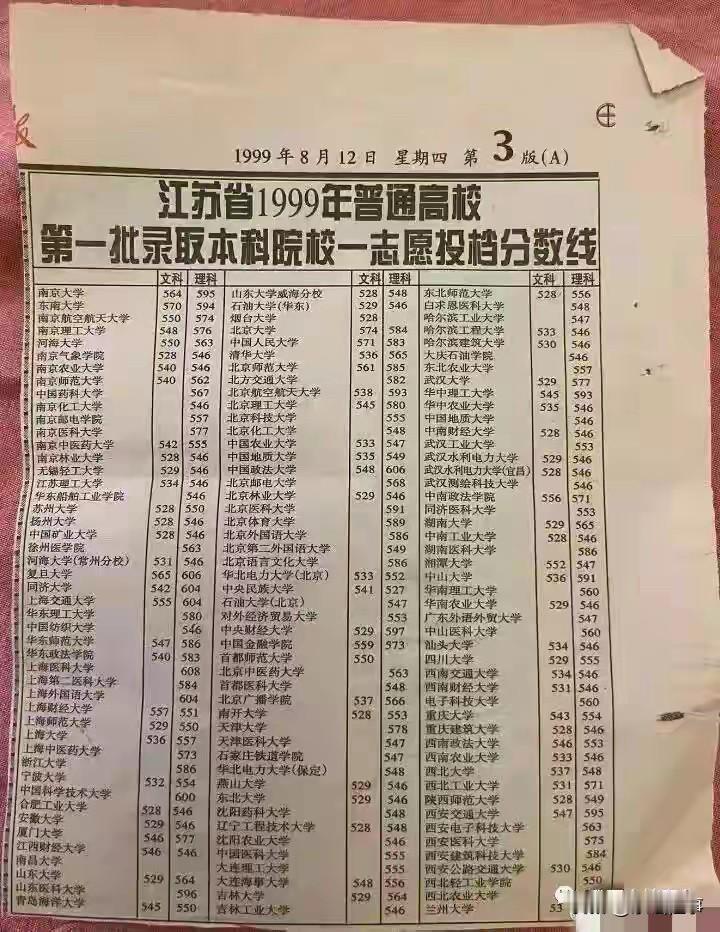 报
1999年8月12日 星期四 第3版(A)
江苏省1999年普通高校
第一批录取本科院校一志愿投档分数线
文科 理科
南京大学 564 595
东南大学 570 594
南京航空航天大学 550 574
南京理工大学 548 576
河海大学 550 563
南京气象学院 528 546
南京农业大学 540 546
南京师范大学 540 562
中国药科大学 567
南京化工大学 546
南京邮电学院 557
南京医科大学 577
南京中医药大学 542 555
南京林业大学 528 546
无锡轻工大学 529 546
江苏理工大学 534 546
华东船舶工业学院 546
苏州大学 528 550
扬州大学 528 546
中国矿业大学 528 546
徐州医学院 563
河海大学(常州分校) 531 546
复旦大学 565 606
同济大学 542 604
上海交通大学 555 604
华东理工大学 580
中国纺织大学 546
华东师范大学 547 586
华东政法学院 540 583
上海医科大学 608
上海第二医科大学 584
上海外国语大学 604
上海财经大学 557 551
上海师范大学 529 550
上海大学 536 557
上海中医药大学 573
浙江大学 586
宁波大学 532 554
中国科学技术大学 600
合肥工业大学 528 546
安徽大学 529 546
厦门大学 546 577
江西财经大学 546 546
南昌大学
山东大学 529 564
山东医科大学 596
青岛海洋大学 545 550
文科 理科
山东大学威海分校 528 548
石油大学(华东) 529 546
烟台大学 528
北京大学 574 584
中国人民大学 571 583
清华大学 536 565
北京师范大学 561 585
北方交通大学 582
北京航空航天大学 538 593
北京理工大学 545 580
北京科技大学 555
北京化工大学 548
中国农业大学 533 547
中国地质大学 535 549
中国政法大学 548 606
北京邮电大学 568
北京林业大学 529 546
北京医科大学 591
北京体育大学 589
北京外国语大学 586
北京第二外国语大学 549
北京语言文化大学 586
华北电力大学(北京) 533 552
中央民族大学 541 527
石油大学(北京) 547
对外经济贸易大学 553
中央财经大学 529 597
中国金融学院 559 573
首都师范大学 550
北京中医药大学 563
首都医科大学 548
北京广播学院 537 566
南开大学 528 553
天津大学 578
天津医科大学 547
石家庄铁道学院 547
华北电力大学(保定) 548
燕山大学 529 546
东北大学 529 546
沈阳药科大学 548
辽宁工程技术大学 528 548
沈阳农业大学 546
中国医科大学 555
大连理工大学 555
大连海事大学 548 556
吉林大学 529 564
吉林工业大学 546
文科 理科
东北师范大学 528 556
白求恩医科大学 548
哈尔滨工业大学 547
哈尔滨工程大学 533 546
哈尔滨建筑大学 530 546
大庆石油学院 546
东北农业大学 557
武汉大学 529 577
华中理工大学 545 593
华中农业大学 535 546
中国地质大学 546
中南财经大学 528 546
武汉工业大学 553
武汉水利电力大学 529 546
武汉水利电力大学(宜昌) 528 546
武汉测绘科技大学 546
中南政法学院 556 571
同济医科大学 553
湖南大学 529 565
中南工业大学 528 546
湖南医科大学 586
湘潭大学 552 547
中山大学 536 591
华南理工大学 560
华南农业大学 529 546
广东外语外贸大学 547
中山医科大学 560
汕头大学 534 546
四川大学 529 555
西南交通大学 534 546
西南财经大学 531 546
电子科技大学 560
重庆大学 543 554
重庆建筑大学 528 546
西南政法大学 546 553
西南农业大学 533 546
西北大学 537 548
西北工业大学 531 571
陕西师范大学 528 549
西安交通大学 547 595
西安电子科技大学 563
西安医科大学 575
西安建筑科技大学 584
西安公路交通大学 530 546
西北轻工业学院 550
西北农业大学
兰州大学 53